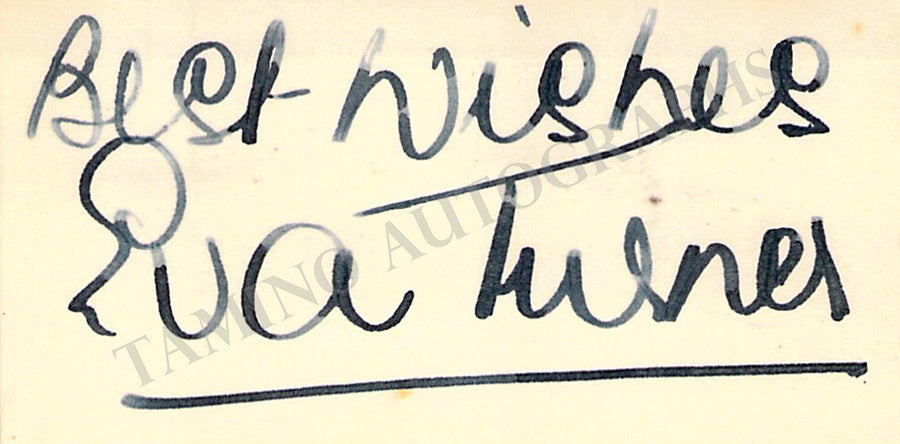 Best Wishes
Eva Turner
TAMINO AUTOGRAPHS